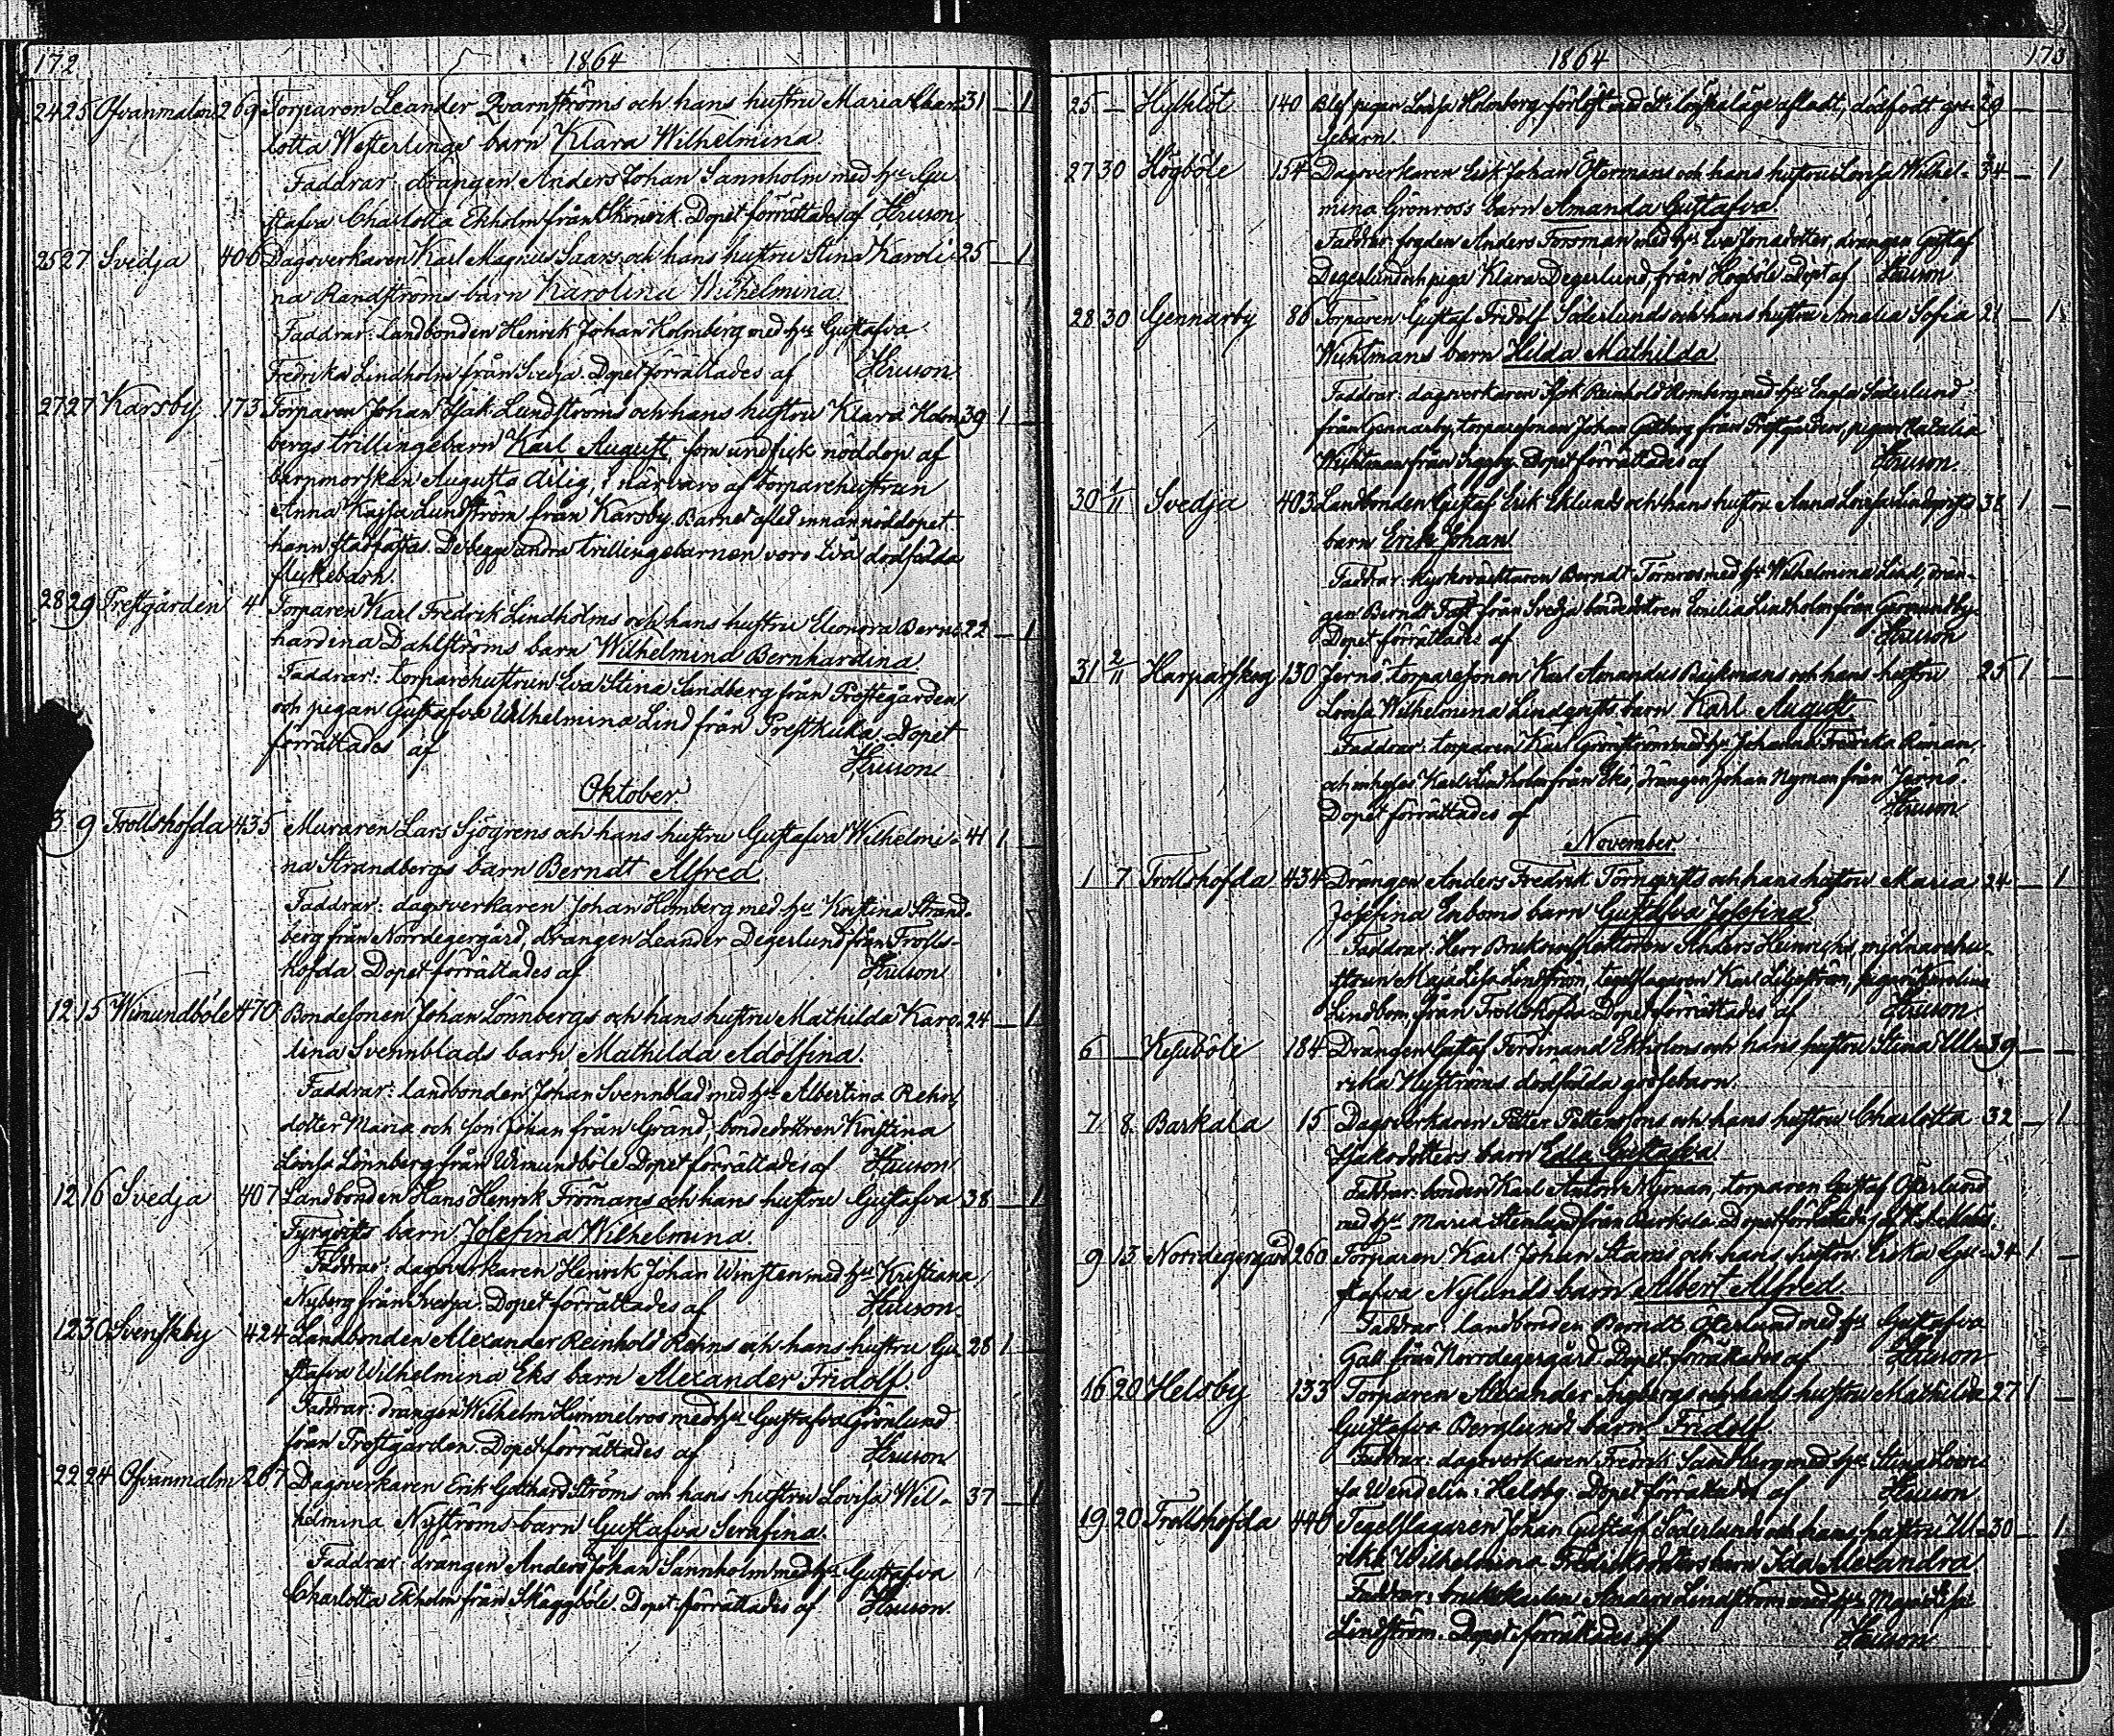 172 1864
24 25 Ofvanmalm 269 Torparen Leander Qvarnströms och hans hustru Maria Char- 31 — 1
lotta Westerlings barn Klara Wilhelmina.
Faddrar: drängen Anders Johan Sannholm med hu Gu-
stafva Charlotta Ekholm från Dopet förrättades af
25 27 Svedja 406 Dagsverkaren Karl Magnus Saars och hans hustru Stina Karoli- 25 — 1
na Randströms barn Karolina Wilhelmina.
Faddrar: Landbonden Henrik Johan Holmberg med hu Gustafva
Fredrika Lindholm från Svedja. Dopet förrättades af
27 27 Karsby 173 Torparen Johan Isak Lundströms och hans hustru Klara Holm- 39 1 —
bergs trillingebarn Karl August, som undfick nöddop af
barnmorskan Augusta i närvaro af torparehustrun
Anna Kajsa Lundström från Karsby. Barnet afled innan nöddopet
hann stadfästas. De begge andra trillingebarnen voro två dödfödda
flickebarn.
28 29 Prestgården 4 Torparen Karl Fredrik Lindholms och hans hustru Eleonora Bern- 22 — 1
hardina Dahlströms barn Wilhelmina Bernhardina
Faddrar: torparehustrun Eva Stina Sandberg från Prestegården
och pigan Gustafva Wilhelmina Lind från Prestkulla. Dopet
förrättades af
Oktober
3 9 Trollshofda 435 Muraren Lars Sjögrens och hans hustru Gustafva Wilhelmi- 41 1 —
na Strandbergs barn Berndt Alfred
Faddrar: dagsverkaren Johan Homberg med hu Kristina Strand-
berg från Norrdegergård, drängen Leander Degerlund från Trolls-
hofda. Dopet förrättades af
12 15 Wimundböle 470 Bondesonen Johan Lönnbergs och hans hustru Mathilda Karo- 24 — 1
lina Svennblads barn Mathilda Adolfina.
Faddrar: landbonden Johan Svennblad med hu Albertina Rehn,
dotter Maria och son Johan från Gränd, bondedottren Kristina
Lovisa Lönnberg från Wimundböle. Dopet förrättades af
12 16 Svedja 407 Landbonden Hans Henrik Frömans och hans hustru Gustafva 38 — 1
Fyrqvists barn Josefina Wilhelmina.
Faddrar: dagsverkaren Henrik Johan Winsten med hu Kristiana
Nyberg från Svedja. Dopet förrättades af
12 30 Svenskby 424 Landbonden Alexander Reinhold Rehns och hans hustru Gu- 28 1 —
stafva Wilhelmina Eks barn Alexander Fridolf
Faddrar: drängen Wilhelm Himmelros med hu Gustafva Grönlund
från Prestgården. Dopet förrättades af
22 24 Ofvanmalm 267 Dagsverkaren Erik Gotthard Ströms och hans hustru Lovisa Wil- 37 — 1
helmina Nyströms barn Gustafva Serafina.
Faddrar: drängen Anders Johan Sannholm med hu Gustafva
Charlotta Ekholm från Skäggböle. Dopet förrättades af
1864 173
25 — 140 Blef pigan Lovisa Holmberg förlöst med ett i lönskaläge afladt, dödfödt gos- 29 — —
sebarn.
27 30 Högböle 154 Dagsverkaren Erik Johan Östermans och hans hustru Lovisa Wilhel- 34 — 1
mina Grönroos barn Amanda Gustafva.
Faddrar: fogden Anders Forsman med hu Eva Jonadotter, drängen Gustaf
Degerlund och piga Klara Degerlund, från Högböle. Dopt af
28 30 Gennarby 86 Torparen Gustaf Fridolf Söderlunds och hans hustru Amalia Sofia 21 — 1
Wichtmans barn Hilda Mathilda
Faddrar: dagsverkaren Isak Reinhold Homberg med hu Engla Söderlund
från Gennarby, torparesonen Johan från Prestgården, pigan Natalia
Wichtman från Dopet förrättades af
30 1/11 Svedja 403 Landbonden Gustaf Erik Eklunds och hans hustru Anna Lovisa Lindqvists 38 1 —
barn Erik Johan
Faddrar: kyrkovaktaren Berndt Törnroos med hu Wilhelmina Lind, drän-
gen Berndt från Svedja, bondedottren Emilia Lindholm från Germundby.
Dopet förrättades af
31 2/11 Harparskog 130 Jernö torparesonen Karl Amandus Bäckmans och hans hustru 25 1 —
Lovisa Wilhelmina Lindqvists barn Karl August.
Faddrar: torparen Karl Grönström med hu Johanna Fredrika
och inhyses Karl Lindholm från Ekö, drängen Johan Nyman från Jernö.
Dopet förrättades af
November
1 7 Trollshofda 434 Drängen Anders Fredrik Törnqvists och hans hustru Maria 24 — 1
Josefina Enboms barn Gustafva Josefina.
Faddrar: Herr Bruksinspektoren Anders Heinrichs, mjölnarehu-
strun Maja Lisa Lindström, tegelslagaren Karl Liljeström, pigan Karolina
Lindbom, från Trollshofda. Dopet förrättades af
6 — Kesuböle 184 Drängen Gustaf Ferdinand Ekholms och hans hustru Stina Ul- 39 — —
rika Nyströms dödfödda gossebarn.
7 8 Barkala 15 Dagsverkaren Petter Pettersons och hans hustru Charlotta 32 — 1
Isaksdotters barn Edla Gustafva
Faddrar: bonden Karl Anton Nyman, torparen Gustaf Österlund
med hu Maria Stenlund från Barkala. Dopet förrättades af
9 13 Norrdegergård 260 Torparen Karl Johan Stams och hans hustru Erika Gu- 34 1 —
stafva Nylunds barn Albert Alfred
Faddrar: landbonden Berndt Österlund med hu Gustafva
Gall från Norrdegergård. Dopet förrättades af
16 20 Helsby 133 Torparen Alexander Ingbergs och hans hustru Mathilda 27 1 —
Gustafva Berglunds barn Fridolf.
Faddrar: dagsverkaren Fredrik Sandberg med hu Stina Lovi-
sa Wendelin: Helsby. Dopet förrättades af
19 20 Trollshofda 440 Tegelslagaren Johan Gustaf Söderlunds och hans hustru Ul- 30 — 1
rika Wilhelmina Fredriksdotters barn Ida Alexandra.
Faddrar: brukskarlen Anders Lindström med hu Maja Lisa
Lindström. Dopet förrättades af